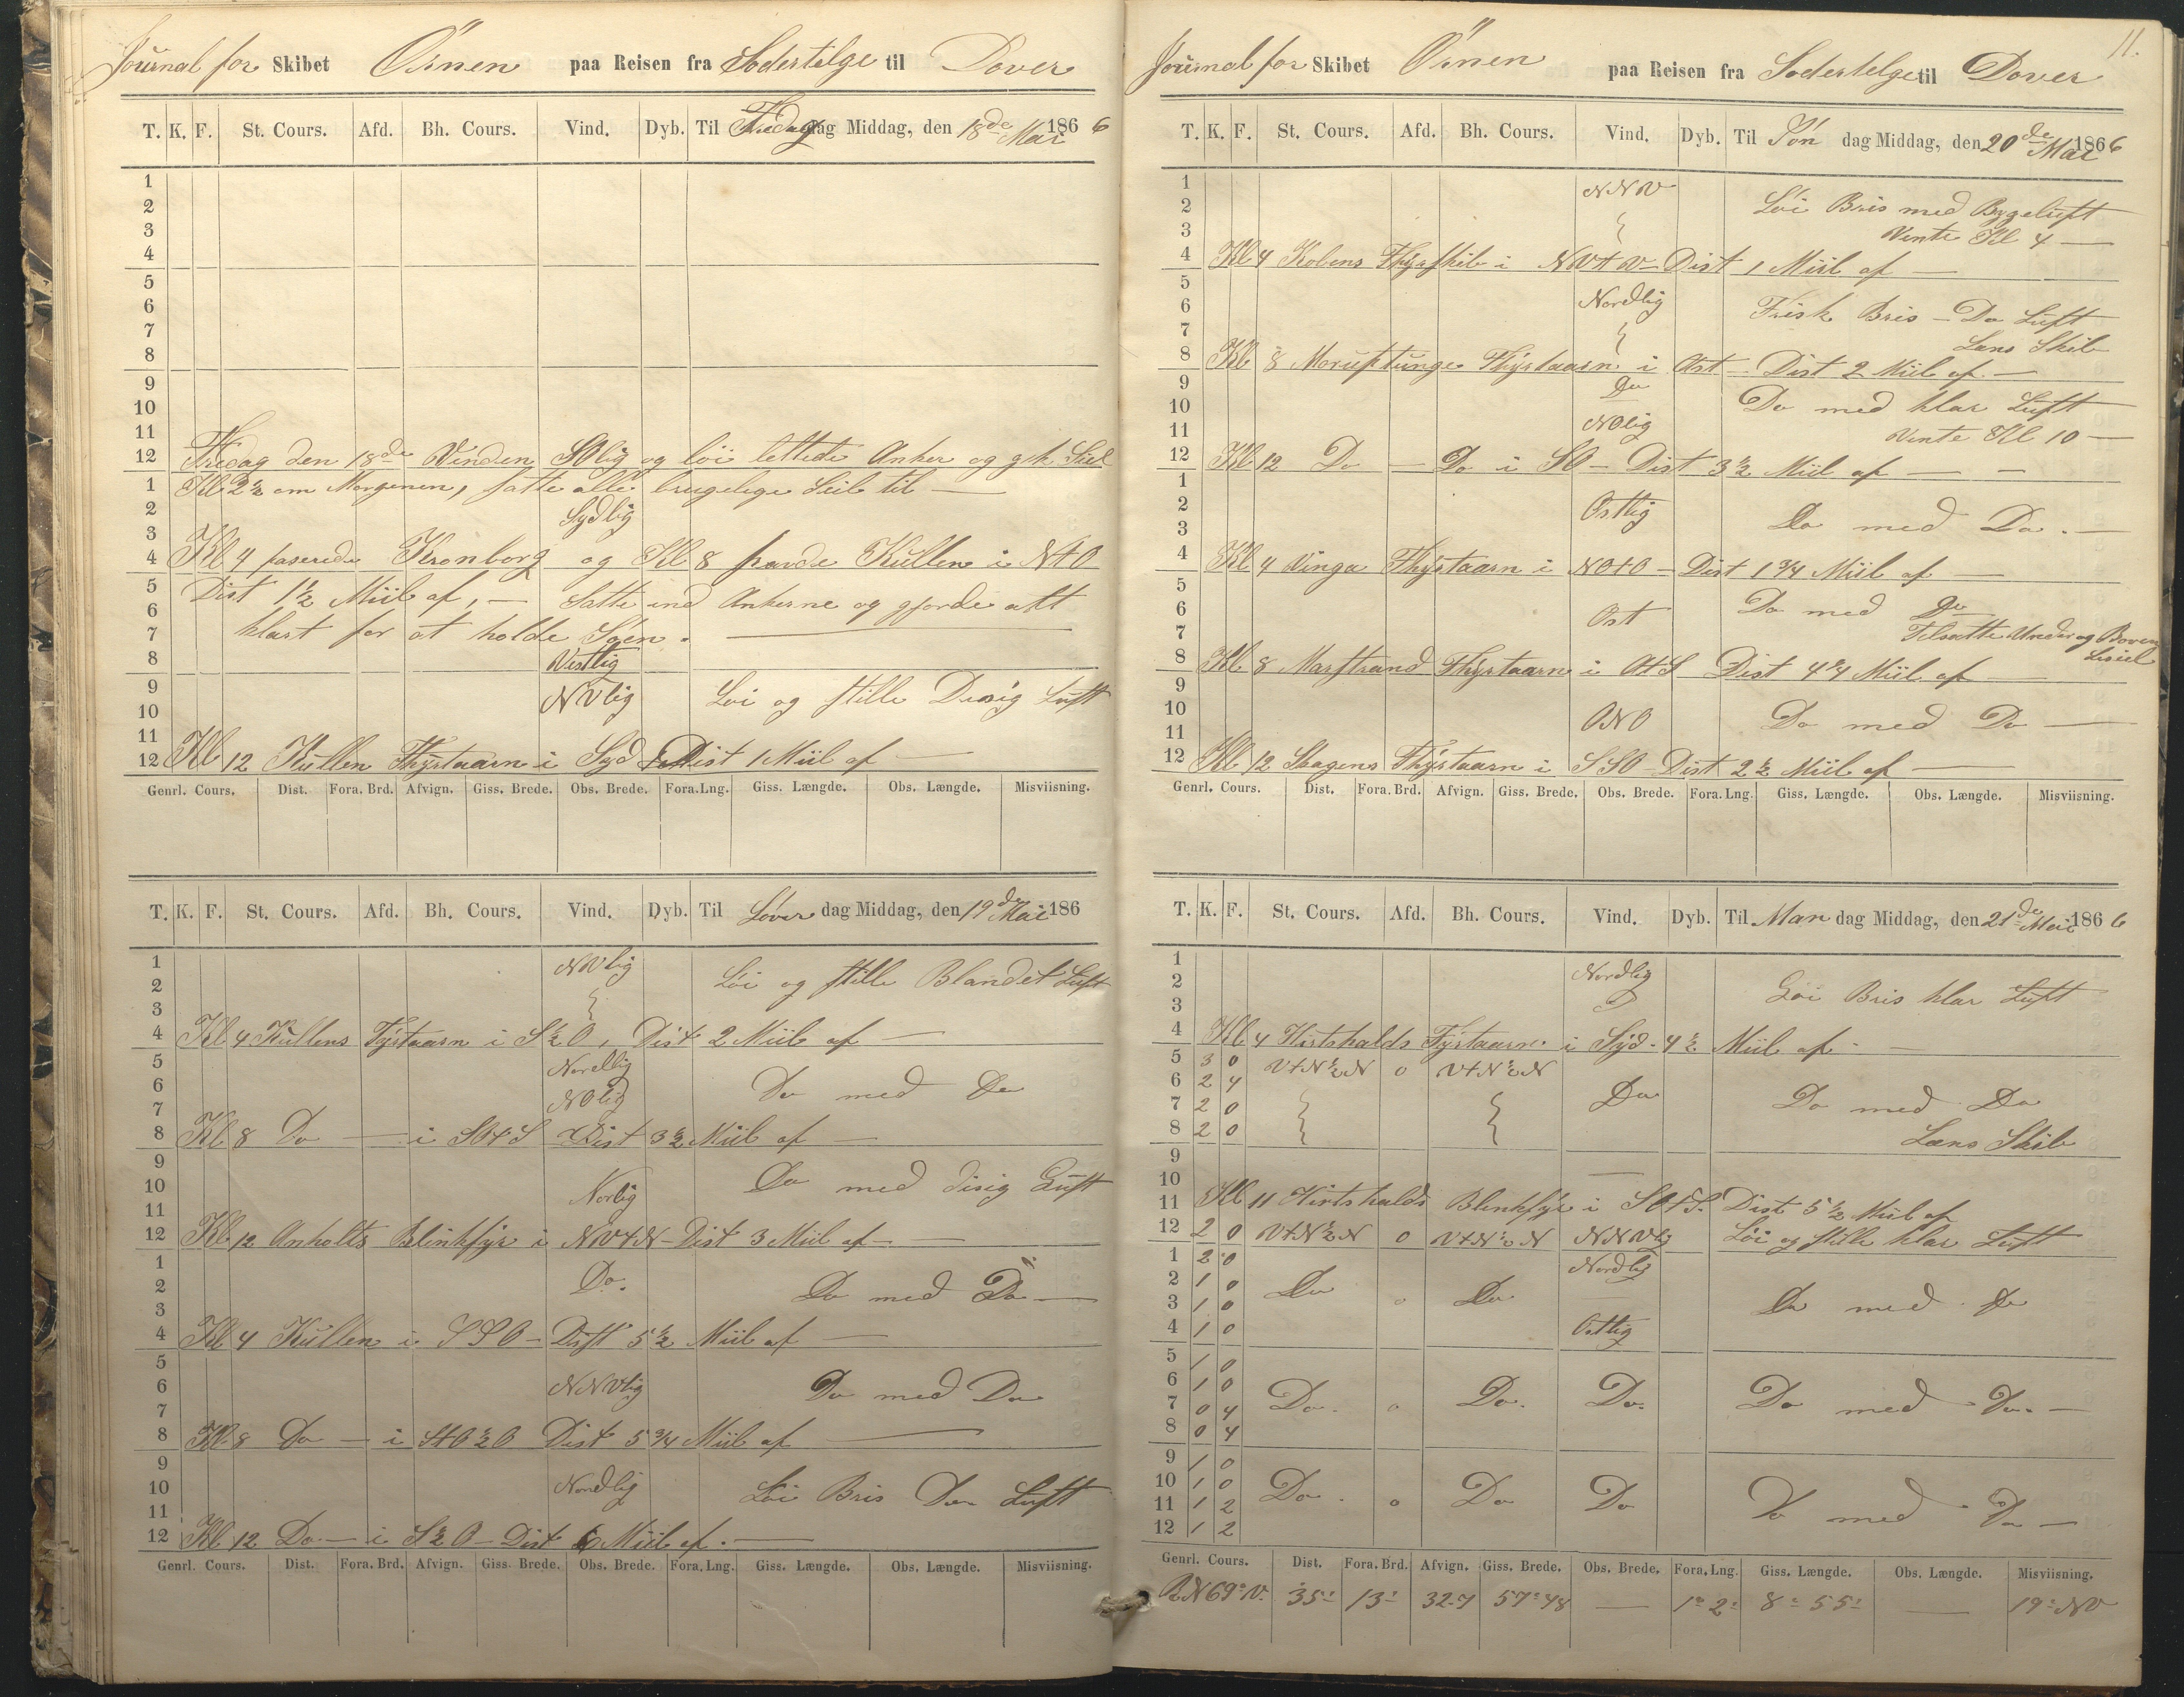 Journal for Skibet Örnen paa Reisen fra Sodertelge til Dover
T. K. F. St. Cours. Afd. Bh. Cours. Vind. Dyb. Til Fredag dag Middag, den 18de Mai 1866
1
2
3
4
5
6
7
8
9
10
11
12 Fredag den 18de Vinden SOlig og löi lettede Anker og gik Seil
1 Kl 2½ om Morgenen, satte alle brugelige Seil til —
2 Sydlig
3
4 Kl 4 paserede Kronborg og Kl 8 havde Kullen i NtO
5 Dist 1½ Miil af, — Satte ind Ankerne og gjorde alt
6
7 klart for at holde Söen. —
8 Vestlig
9 NVlig Löi og stille Disig Luft
10
11
12 Kl 12 Kullen Fhyrtaarn i Syd Dist 1 Miil af —
Genrl. Cours. Dist. Fora. Brd. Afvign. Giss. Brede. Obs. Brede. Fora. Lng. Giss. Længde. Obs. Længde. Misviisning.
T. K. F. St. Cours. Afd. Bh. Cours. Vind. Dyb. Til Löver dag Middag, den 19de Mai 186
1 NVlig Löi og stille Blandet Luft
2
3
4 Kl 4 Kullens Fyrtaarn i S½O, Dist 2 Miil af —
5 Nordlig
6 NOlig Do med Do
7
8 Kl 8 Do — i SOtS Dist 3½ Miil af —
9
10 Norlig Do med disig Luft
11
12 Kl 12 Anholts Blinkfyr i NVtN — Dist 3 Miil af —
1
2 Do. Do med Do —
3
4 Kl 4 Kullen i SSO — Dist 5½ Miil af —
5
6 NNVlig Do med Do
7
8 Kl 8 Do — i StO½O Dist 5¾ Miil af —
9
10 Nordlig Löi Bris Do Luft
11
12 Kl 12 Do — i S½O — Dist 6 Miil af. —
Genrl. Cours. Dist. Fora. Brd. Afvign. Giss. Brede. Obs. Brede. Fora. Lng. Giss. Længde. Obs. Længde. Misviisning.
11.
Journal for Skibet Örnen paa Reisen fra Sodertelge til Dover
T. K. F. St. Cours. Afd. Bh. Cours. Vind. Dyb. Til Sön dag Middag, den 20de Mai 1866
1 NNV
2 Löi Bris med Bygeluft
3 Vente Kl 4 —
4 Kl 4 Kobens Fhyrskib i NVtV — Dist 1 Miil af —
5
6 Nordlig Frisk Bris — Do Luft
7 Lens Skib
8 Kl 8 Moruptunge Fhyrtaarn i Ost — Dist 2 Miil af —
9 Do
10 Do med klar Luft
11 NOlig Vente Kl 10 —
12 Kl 12 Do — Do i SO — Dist 3½ Miil af — —
1
2 Ostlig
3 Do med Do. —
4 Kl 4 Vinga Fhyrtaarn i NOtO — Dist 1¾ Miil af —
5
6 Ost Do med Do
7 Tilsatte Under og Boven
8 Kl 8 Marstrand Fhyrtaarn i OtS Dist 4¾ Miil af — Leseil
9
10 ONO Do med Do —
11
12 Kl 12 Skagens Fhyrtaarn i SSO — Dist 2½ Miil af —
Genrl. Cours. Dist. Fora. Brd. Afvign. Giss. Brede. Obs. Brede. Fora. Lng. Giss. Længde. Obs. Længde. Misviisning.
T. K. F. St. Cours. Afd. Bh. Cours. Vind. Dyb. Til Man dag Middag, den 21de Mai 1866
1 Nordlig
2 Löi Bris klar Luft
3
4 Kl 4 Hirtshalds Fyrtaarn. i Syd. 4½ Miil af —
5 3 0 VtN½N 0 VtN½N
6 2 4 Do Do med Do
7 2 0
8 2 0 Læns Skib
9
10
11 Kl 11 Hirtshalds Blenkfyr i SOtS. Dist 5½ Miil af
12 2 0 VtN½N 0 VtN½N NNVlig Löi og Stille klar Luft
1 2 0 Nordlig
2 1 0 Do 0 Do Do med Do
3 1 0
4 1 0 Ostlig
5 1 0
6 1 0 Do. 0 Do. Do. Do med Do. —
7 0 4
8 0 4
9 1 0
10 1 0 Do. 0 Do Do Do med Do —
11 1 2
12 1 2
Genrl. Cours. Dist. Fora. Brd. Afvign. Giss. Brede. Obs. Brede. Fora. Lng. Giss. Længde. Obs. Længde. Misviisning.
RN 69° V. 35 13 32.7 57° 48 — 1° 2 8° 55 — 19° NV